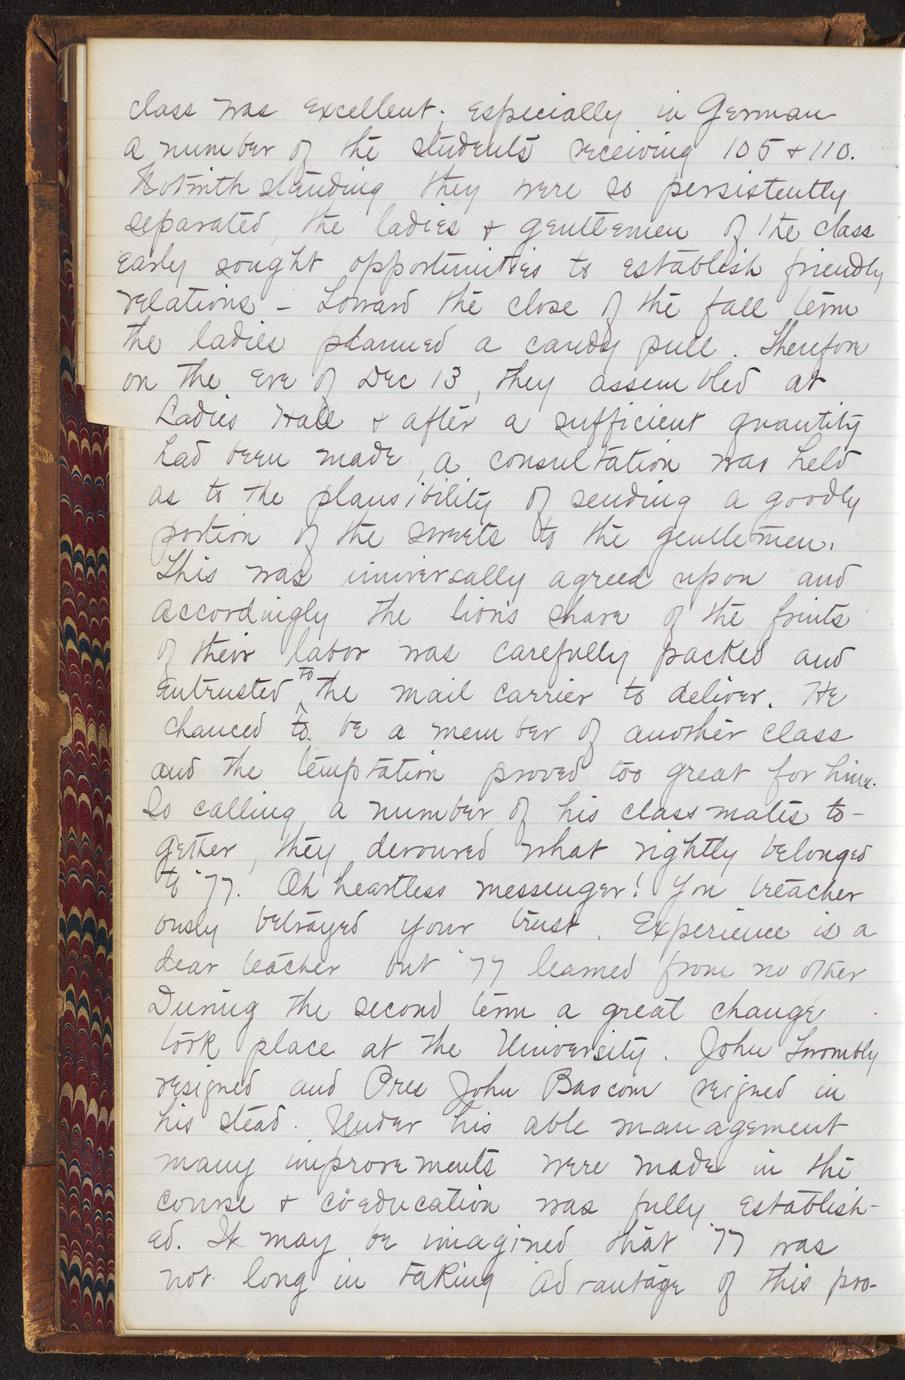 class was excellent; especially in German
a number of the students receiving 105 & 110.
Notwithstanding they were so persistently
separated, the ladies & gentlemen of the class
early sought opportunities to establish friendly
relations - Toward the close of the fall term
the ladies planned a candy pull. Therefore
on the eve of Dec 13, they assembled at
Ladies Hall & after a sufficient quantity
had been made, a consultation was held
as to the plausibility of sending a goodly
portion of the sweets to the gentlemen.
This was universally agreed upon and
accordingly the lion's share of the fruits
of their labor was carefully packed and
entrusted to the mail carrier to deliver. He
chanced to be a member of another class
and the temptation proved too great for him.
So calling a number of his classmates to-
gether, they devoured what rightly belonged
to '77. Oh heartless messenger! You treacher
ously betrayed your trust. Experience is a
dear teacher but '77 learned from no other
During the second term a great change
took place at the University. John Twombly
resigned and Pres John Bascom reigned in
his stead. Under his able management
many improvements were made in the
course & coeducation was fully establish-
ed. It may be imagined that '77 was
not long in taking advantage of this pro-